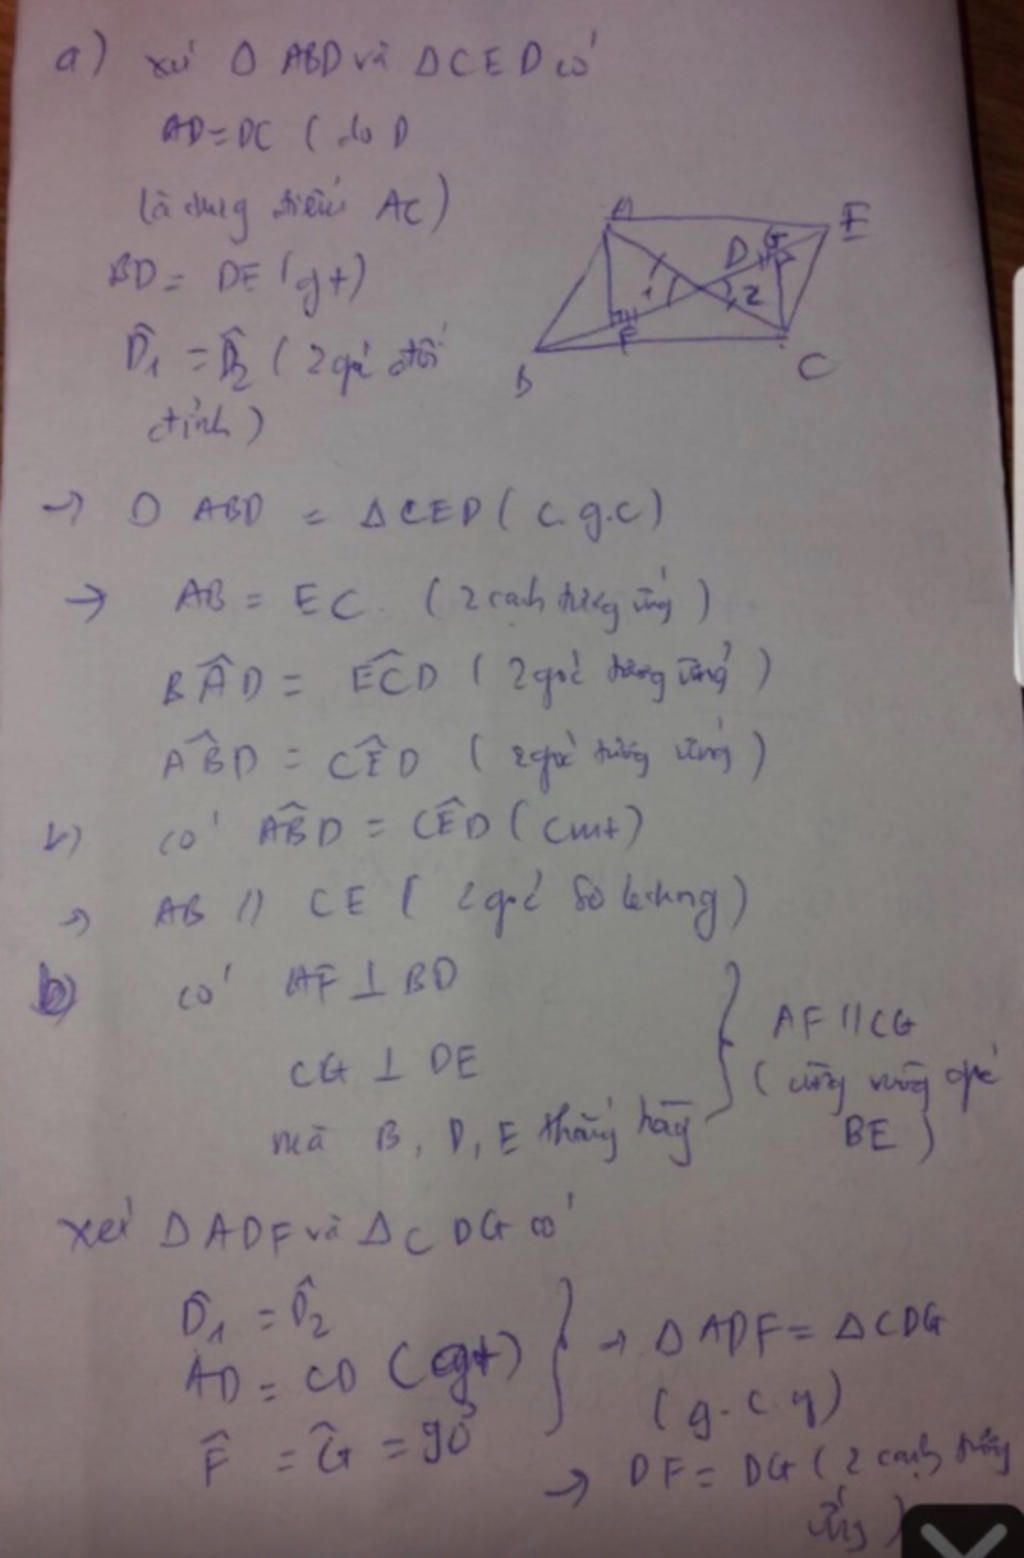 a) xét Δ ABD và ΔCED có
AD=DC ( do D
là trung điểm AC)
BD = DE (gt)
D̂₁ = D̂₂ ( 2 góc đối
đỉnh )
→ Δ ABD = ΔCED ( c.g.c)
→ AB = EC ( 2 cạnh tương ứng )
BÂD = EĈD ( 2 góc tương ứng )
AB̂D = CÊD ( 2 góc tương ứng )
có AB̂D = CÊD ( cmt)
→ AB // CE ( 2 góc so le trong )
b) có AF ⊥ BD
CG ⊥ DE
mà B, D, E thẳng hàng
AF // CG
( cùng vuông góc
BE )
xét Δ ADF và Δ CDG có
D̂₁ = D̂₂
AD = CD (cgt)
F̂ = Ĝ = 90°
→ Δ ADF = Δ CDG
( g. c. g)
→ DF = DG ( 2 cạnh tương
ứng )
A
E
D
G
1
2
F
B
C